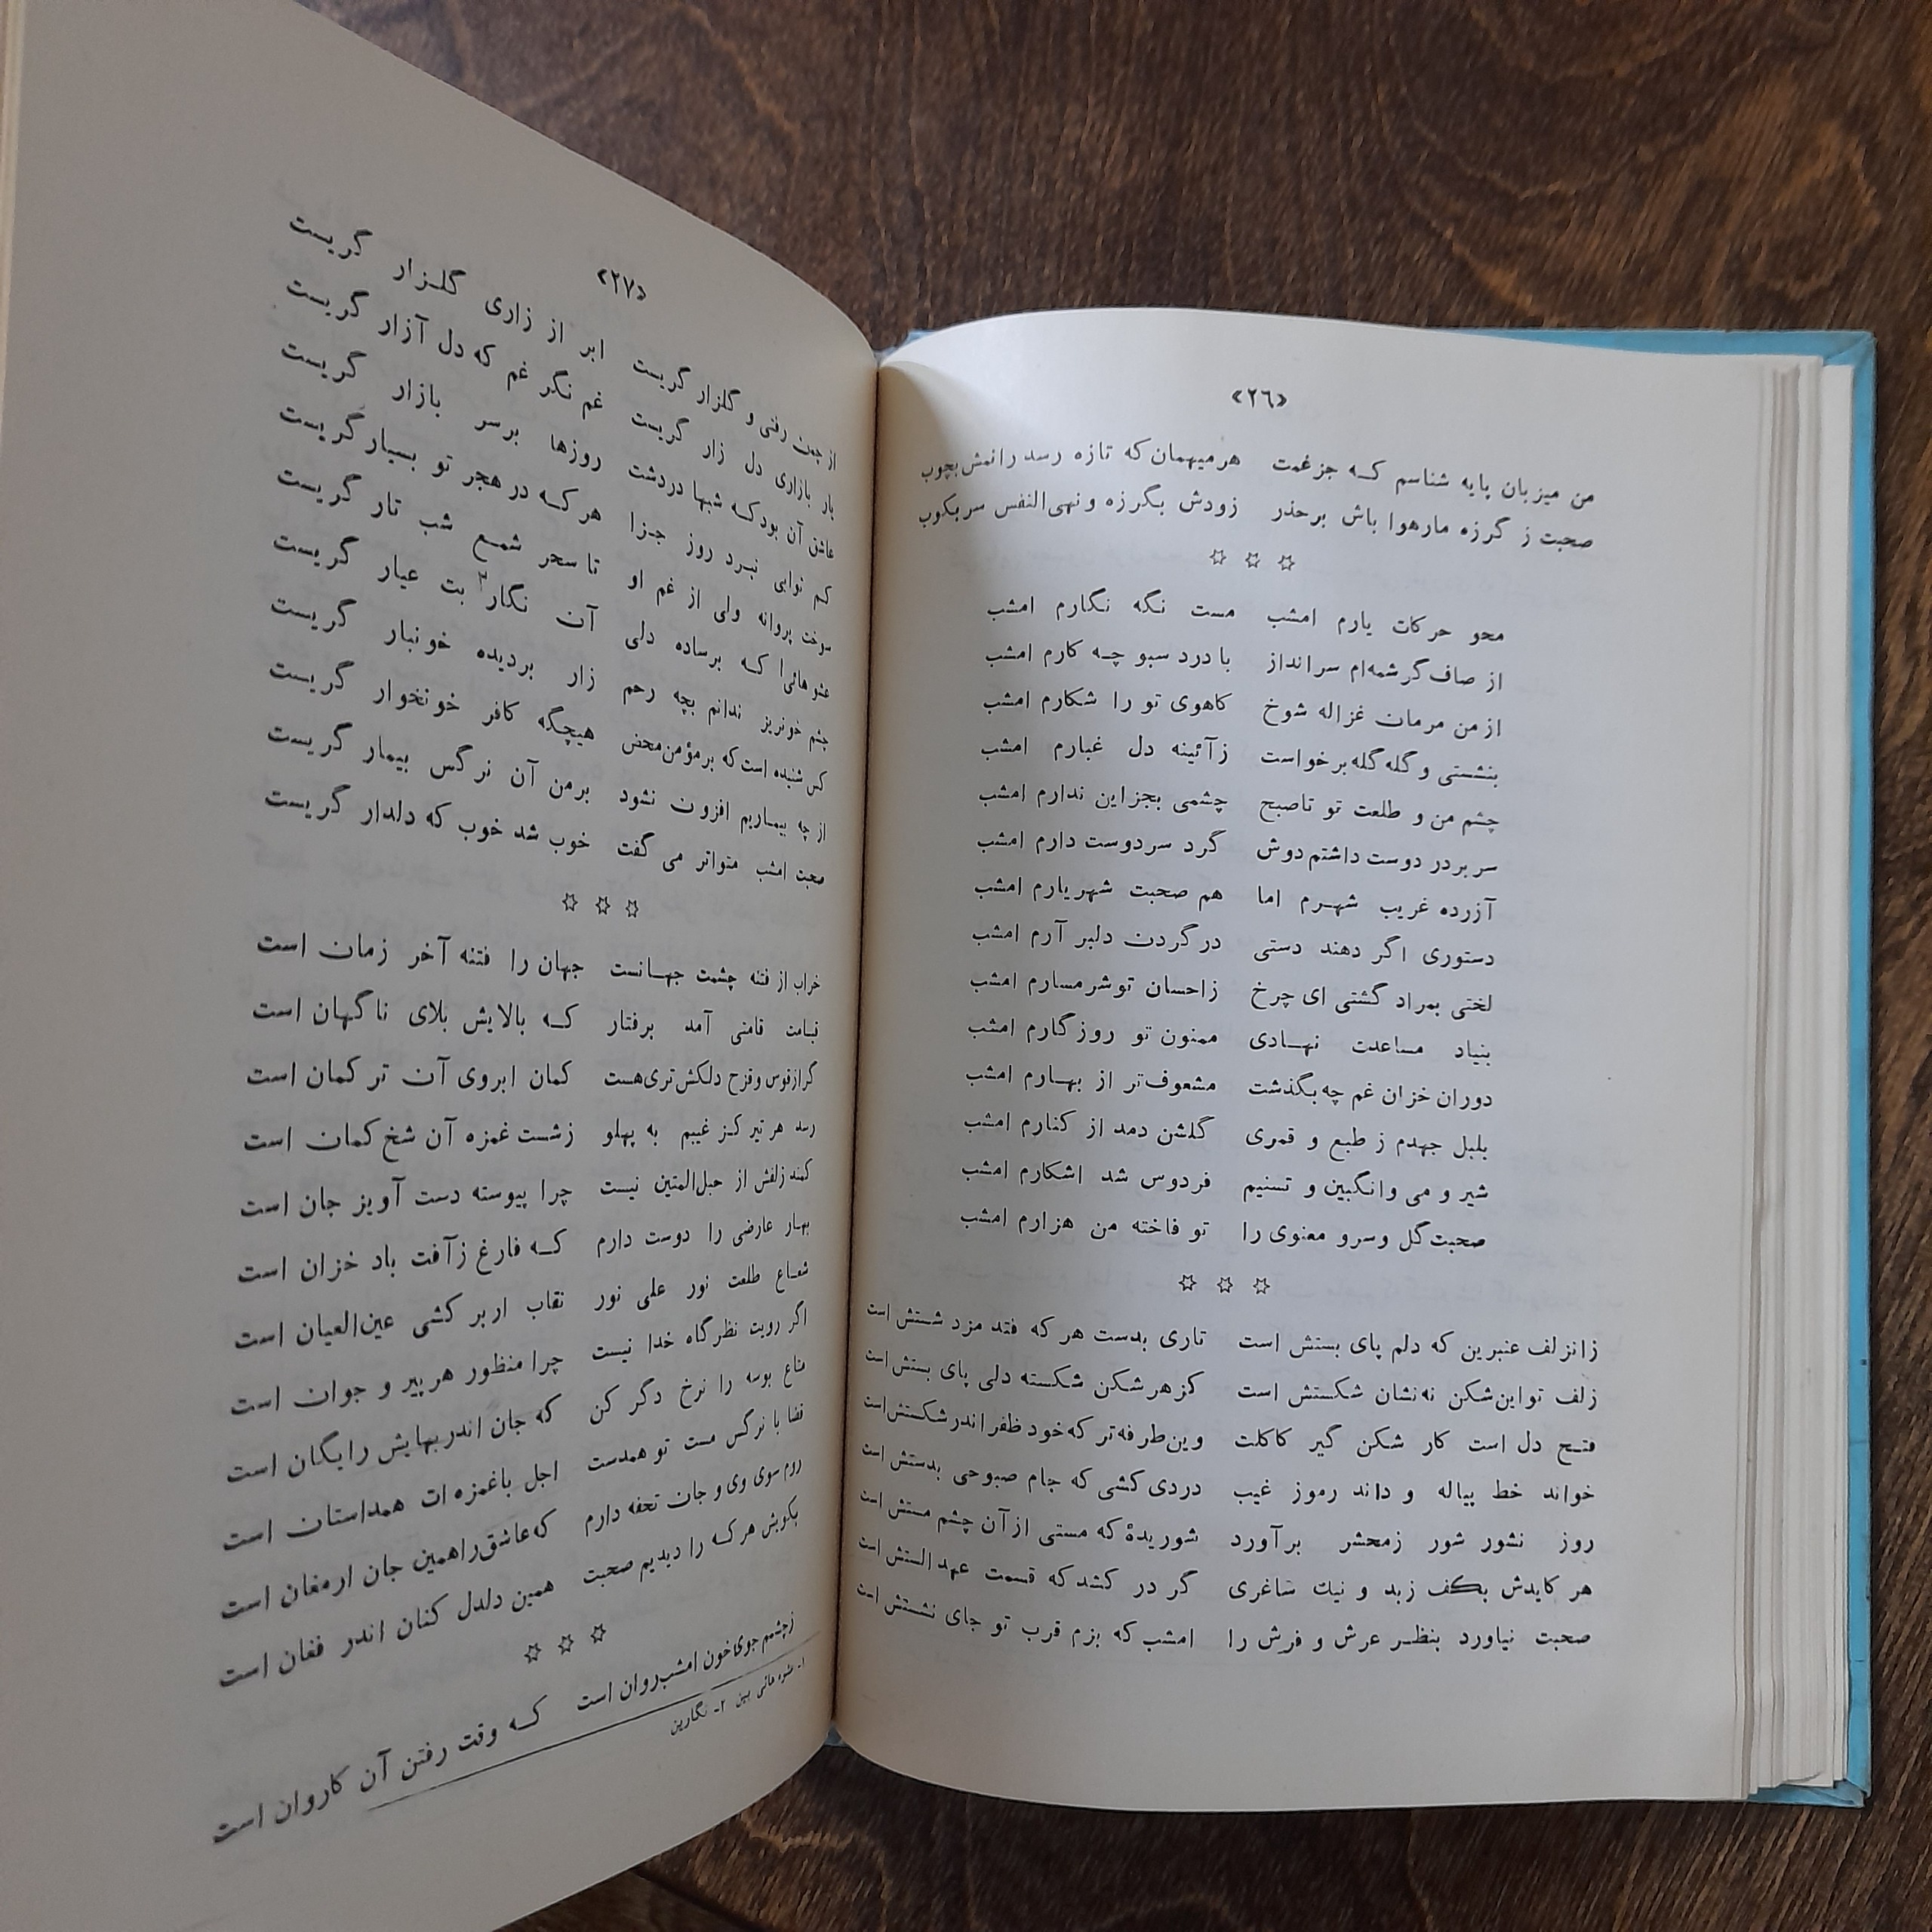 «۲۶»
من میزبان پایه شناسم کـه جز غمت هرمیهمان که تازه رسد رانمش بچوب
صحبت ز گرزه مارهوا باش برحذر زودش بگرزه ونهی‌النفس سربکوب
محو حرکات یارم امشب مست نگه نگارم امشب
از صاف‌کرشمه‌ام سرانداز با درد سبو چـه کارم امشب
از من مرمان غزاله شوخ کاهوی تو را شکارم امشب
بنشستی و گله‌گله‌برخواست زآئینه دل غبارم امشب
چشم من و طلعت تو تاصبح چشمی بجزاین ندارم امشب
سر بردر دوست داشتم دوش گرد سردوست دارم امشب
آزرده غریب شهـرم اما هم صحبت شهریارم امشب
دستوری اگر دهند دستی درگردن دلبر آرم امشب
لختی بمراد گشتی ای چرخ زاحسان توشرمسارم امشب
بنیاد مساعدت نهـادی ممنون تو روزگارم امشب
دوران خزان غم چه‌بگذشت مشعوف‌تر از بهـارم امشب
بلبل جهدم ز طبع و قمری گلشن دمد از کنارم امشب
شیر و می وانگبین و تسنیم فردوس شد اشکارم امشب
صحبت‌گل وسرو معنوی را تو فاخته من هزارم امشب
زانزلف عنبرین که دلم پای بستش است تاری بدست هر که فتد مزد شستش است
زلف تواین‌شکن نه‌نشان شکستش است کزهرشکن شکسته دلی پای بستش است
فتـح دل است کار شکن گیر کاکلت وین‌طرفه‌تر که‌خود ظفراندرشکستش‌است
خواند خط پیاله و داند رموز غیب دردی کشی که جام صبوحی بدستش است
روز نشور شور زمحشر برآورد شوریدهٔ که مستی ازآن چشم مستش است
هر کایدش بکف زبد و نیك شاغری گر در کشد که قسمت عهد الستش است
صحبت نیاورد بنظـر عرش و فرش را امشب که بزم قرب تو جای نشستش است
«۲۷»
از چمن رفتی و گلزار گریست ابر از زاری گلـزار گریست
یار بازاری دل زار گریست غم نگر غم که دل آزار گریست
عاشق آن بودکـه شبها دردشت روزها برسر بازار گریست
کم ثوابی نبـرد روز جـزا هرکـه درهجر تو بسیارگریست
سوخت پروانه ولی از غم او تا سحر شمـع شب تار گریست
عشوهائی۱ کـه برساده دلی آن نگار۲ بت عیار گریست
چشم خونریز ندانم بچه رحم زار بردیده خونبار گریست
کس شنیده است‌که برمؤمن‌محض هیچگه کافر خونخوار گریست
از چه بیمـاریم افزون نشود برمن آن نرگس بیمار گریست
صحبت امشب متواتر می گفت خوب شد خوب که دلدار گریست
خراب از فتنه چشمت جهـانست جهان را فتنه آخر زمان است
قیـامت قامتی آمد برفتار کـه بالایش بلای ناگهان است
گرازقوس وقزح دلکش‌تری‌هست کمان ابروی آن ترکمان است
رسد هر تیر کـز غیبم به پهلو زشست غمزه آن شخ کمان است
کمند زلفش از حبل‌المتین نیست چرا پیوسته دست آویز جان است
بهـار عارضی را دوست دارم کـه فارغ زآفت باد خزان است
شعـاع طلعت نور علی نور نقاب اربر کشی عین‌العیان است
اگر رویت نظرگاه خدا نیست چرا منظور هرپیر و جوان است
متاع بوسه را نرخ دگر کن که جان اندربهایش رایگان است
قضا با نرگس مست تو همدست اجل باغمزه ات همداستان است
روم سوی وی و جان تحفه دارم که‌عاشق‌راهمین جان ارمغان است
بکویش هرکـه را دیدیم صحبت همین دلدل کنان اندر فغان است
زچشمم جوی‌خون امشب‌روان است کـه وقت رفتن آن کاروان است
۱- عشوه هائی بین ۲- نگارین